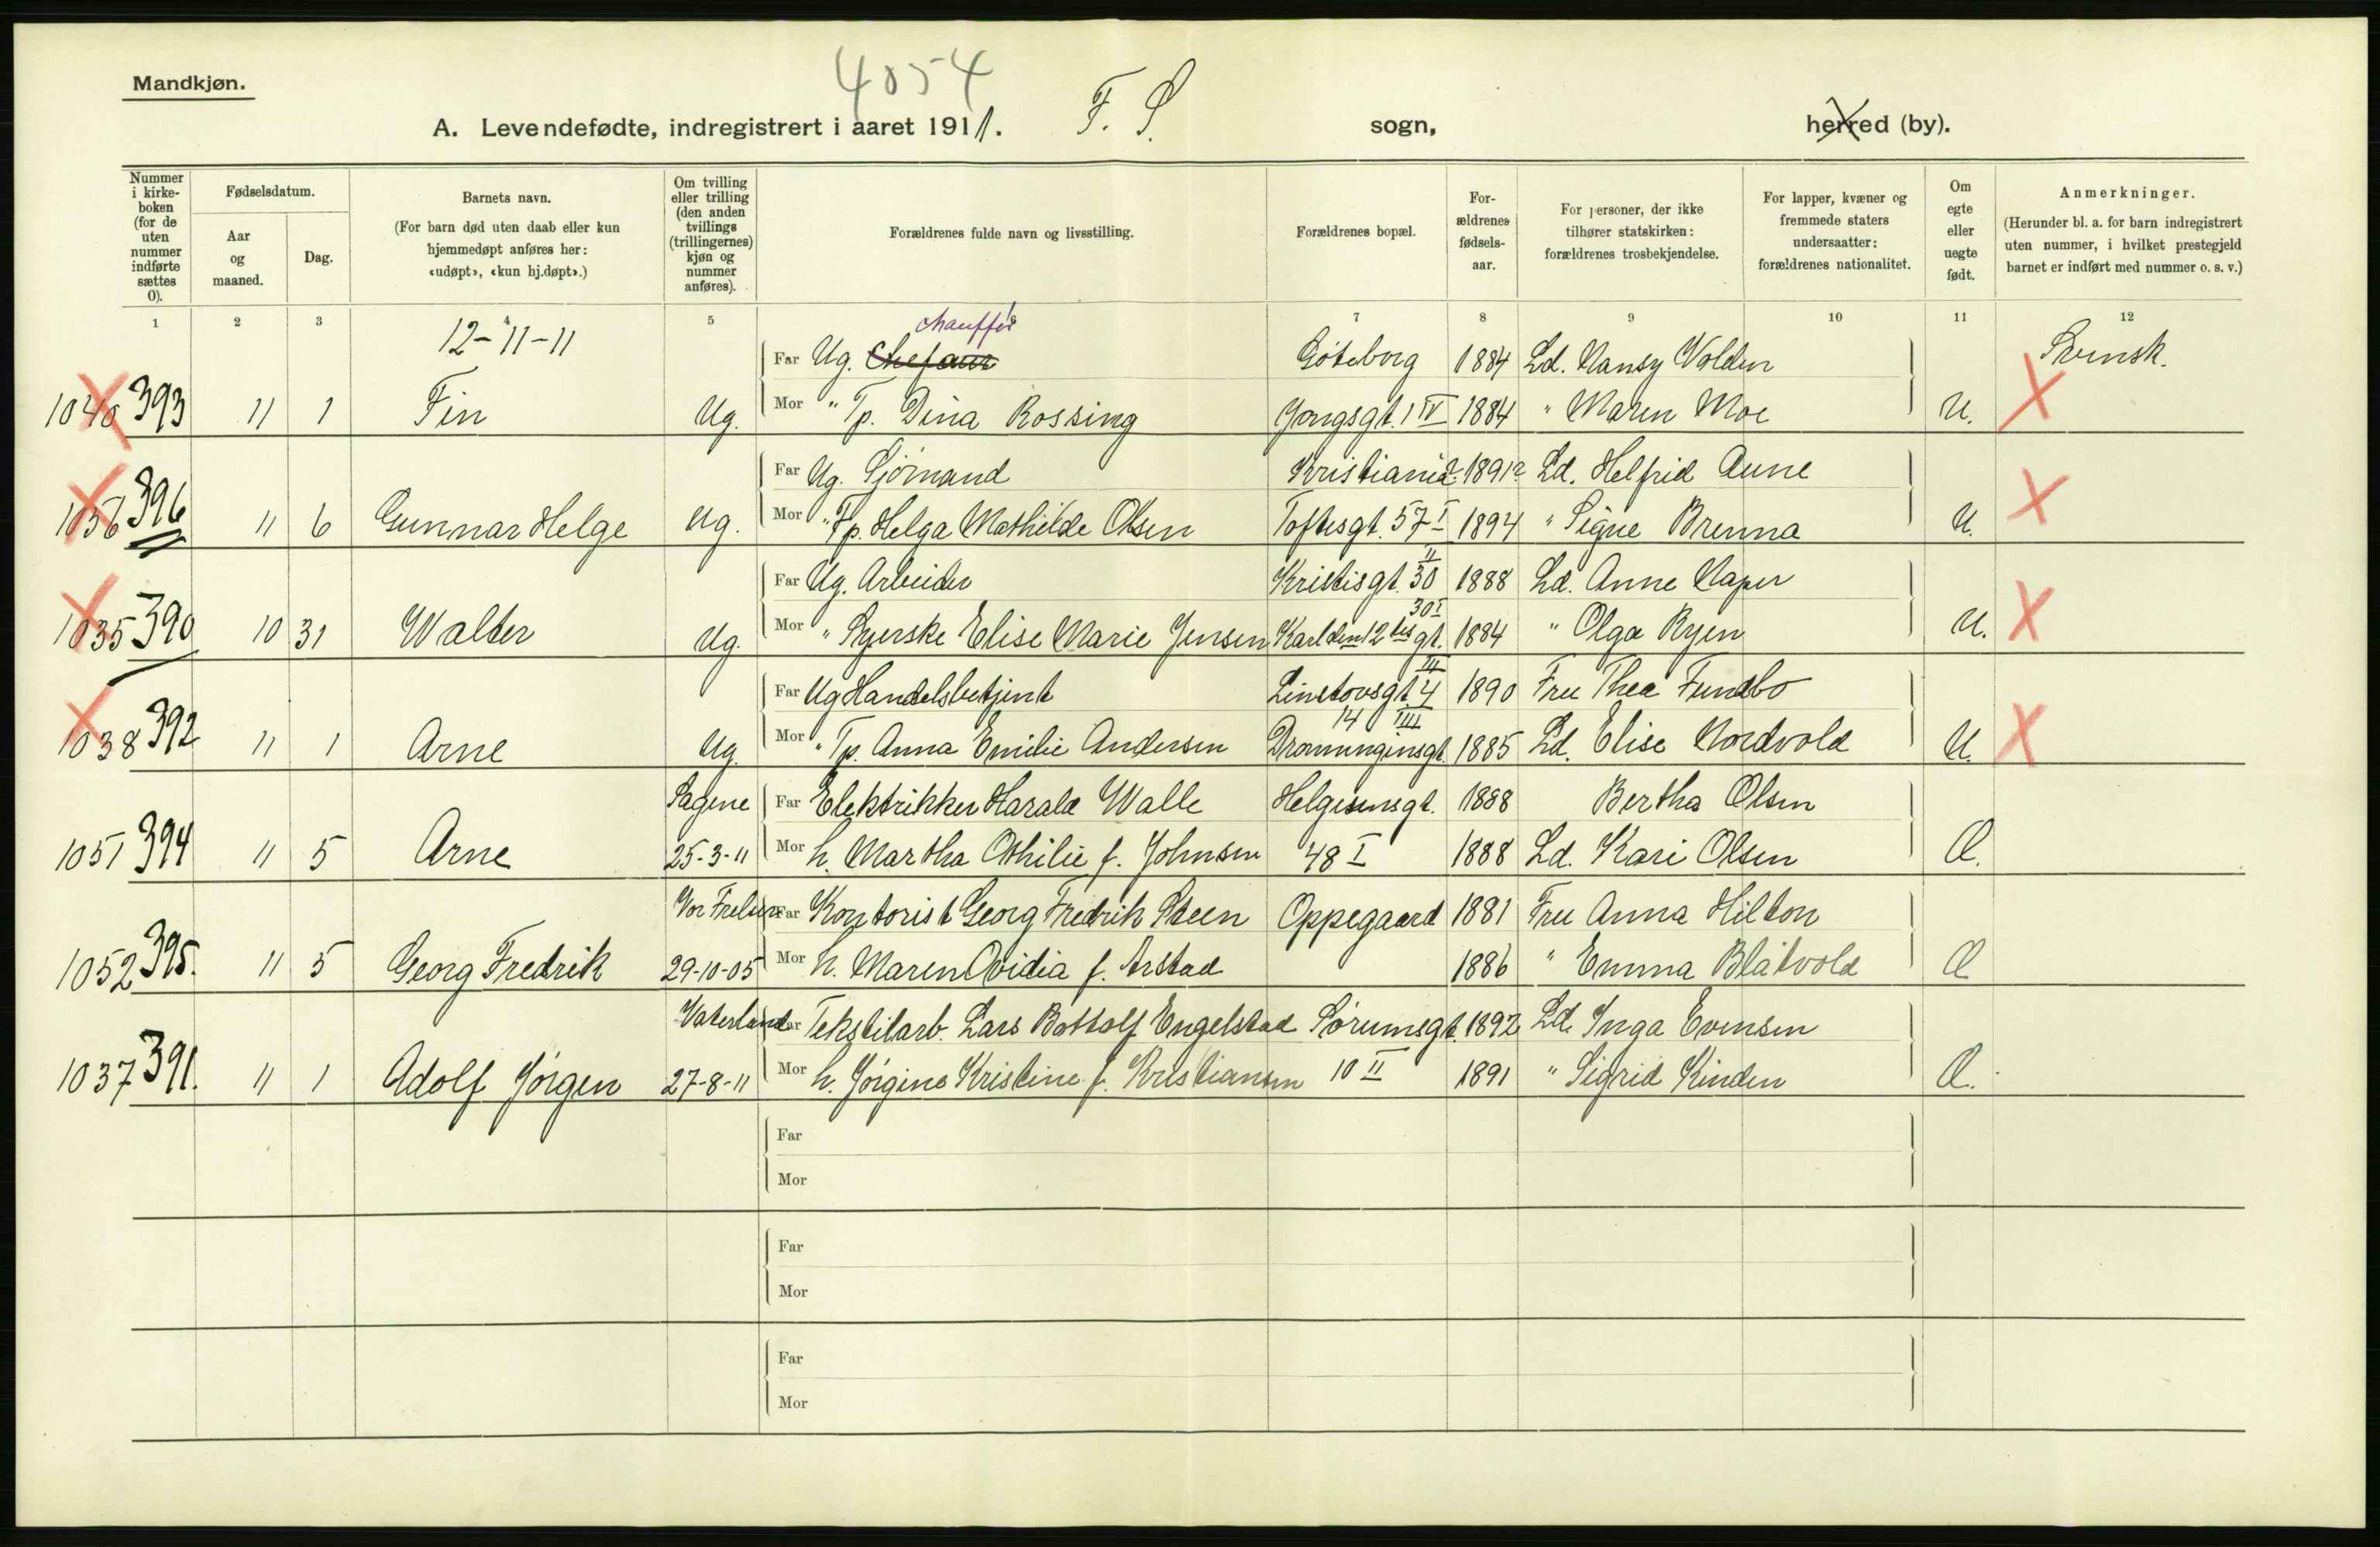 4054
Mandkjøn.
A. Levendefødte, indregistrert i aaret 1911. F. S. sogn, herred (by).
Nummer i kirkeboken (for de uten nummer indførte sættes 0).
Fødselsdatum.
Aar og maaned.
Dag.
Barnets navn.
(For barn død uten daab eller kun hjemmedøpt anføres her: «udøpt», «kun hj.døpt».)
Om tvilling eller trilling (den anden tvillings (trillingernes) kjøn og nummer anføres).
Forældrenes fulde navn og livsstilling.
Forældrenes bopæl.
Forældrenes fødselsaar.
For personer, der ikke tilhører statskirken: forældrenes trosbekjendelse.
For lapper, kvæner og fremmede staters undersaatter: forældrenes nationalitet.
Om egte eller uegte født.
Anmerkninger.
(Herunder bl. a. for barn indregistrert uten nummer, i hvilket prestegjeld barnet er indført med nummer o. s. v.)
1 2 3 4 5 6 7 8 9 10 11 12
12-11-11
chauffør
Far Ug. Göteborg 1884 Ld. Nansy Volden Svensk.
1040 393 11 1 Fin Ug. Mor " Tp. Dina Rossing Yongsgt. 1 IV 1884 " Maren Moe U. X
Far Ug. Sjömand Kristiania 1891? Ld. Helfrid Aune
1056 396 11 6 Gunnar Helge Ug. Mor " Fp. Helga Mathilde Olsen Toftesgt. 57 I 1894 " Signe Brenna U. X
Far Ug. Arbeider Kristisgt. 30 II 1888 Ld. Anne Naper
1035 390 10 31 Walter Ug. Mor " Syerske Elise Marie Jensen Karl den 12tes gt. 30 I 1884 " Olga Ryen U. X
Far Ug Handelsbetjent Linstowsgt. 4 III 1890 Fru Thea Fundbo
1038 392 11 1 Arne Ug. Mor " Tp. Anna Emilie Andersen Dronningensgt. 14 III 1885 Ld. Elise Nordvold U. X
Sagene Far Elektrikker Harald Walle Helgesensgt. 1888 Bertha Olsen
1051 394 11 5 Arne 25-3-11 Mor h. Martha Othilie f. Johnsen 48 I 1888 Ld. Kari Olsen E.
Vor Frelser Far Kontorist Georg Fredrik Steen Oppegaard 1881 Fru Anna Hilton
1052 395. 11 5 Georg Fredrik 29-10-05 Mor h. Maren Ovidia f. Arstad 1886 " Emma Blåtvold E
Vaterland Far Tekstilarb. Lars Bottolf Engelstad Sørumsgt. 1892 Ld. Inga Evensen
1037 391. 11 1 Adolf Jörgen 27-8-11 Mor h. Jörgine Kristine f. Kristiansen 10 II 1891 " Sigrid Kinden E.
Far
Mor
Far
Mor
Far
Mor